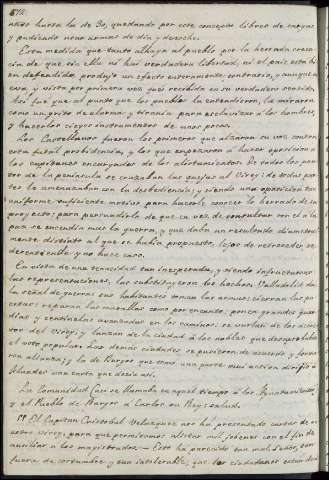 nuos hasta la de 30, quedando por este concepto libres de cargas
y pudiendo usar armas de dia y de noche.
Esta medida que tanto alhaga al pueblo por la herrada creen-
cia de que sin ello no hai verdadera libertad, ni el pais está bi-
en defendido, produjo un efecto enteramente contrario, y aunque
era, y vista por primera vez fué recibida en su verdadero sentido.
Asi fue que al punto que los pueblos la entendieron, la miraron
como un grito de alarma y tirania para esclavizar a los hombres,
y hacerlos ser instrumentos de unos pocos.
Los Castellanos fueron los primeros que alzaron su voz contra
esta fatal providencia, y los que empezaron á hacer oposicion a
los capitanes encargados de los alistamientos. De todos los pun-
tos de la peninsula se cruzaban las quejas al Virey; de todas par-
tes le amenazaban con la desobediencia; y siendo una oposicion tan
uniforme suficiente motivo para hacerle conocer lo herrado de su
proyecto; para persuadirle de que en vez de consultar con él a la
paz se encendia mas la guerra, y que daba un resultado diametral-
mente distinto al que se habia propuesto, lejos de retroceder, se
desentiende y no hace caso.
En vista de una tenacidad tan inesperada, y siendo infructuosas
las representaciones, las substituyeron los hechos. Valladolid da
la señal de guerra: sus habitantes toman las armas; cierran las pu-
ertas; reparan las murallas como por encanto; ponen grandes guar-
dias y centinelas avanzadas en los caminos; se burlan de los acuer-
dos del Virey; y lanzan de la ciudad á los nobles que desaprobaban
el voto popular. Las demas ciudades se pusieron de acuerdo y forma-
ron alianza; y la de Burgos que tomó una parte mui activa dirijió a
Adriano una carta que decia asi.
La Comunidad (asi se llamaba en aquel tiempo á los Ayuntamientos)
y el Pueblo de Burgos á Carlos su Rey; salud.
El Capitan Cristobal Velazquez nos ha presentado cartas de
estos Virey, para que permitamos alistar mil jovenes con el fin de
auxiliar a los magistrados.— Esto ha parecido tan mal á todos, tan
fuera de costumbre y tan intolerable, que los ciudadanos están